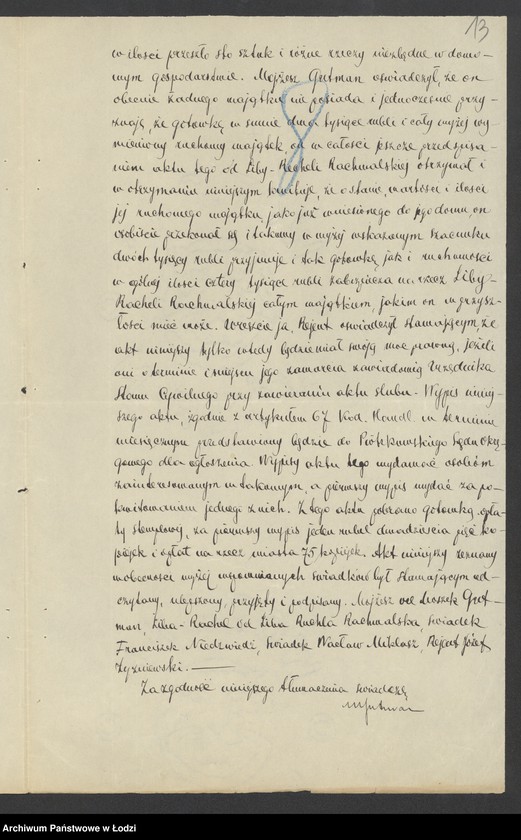 13
w ilości przeszło sto sztuk i różne rzeczy niezbędne w domo-
wym gospodarstwie. Mojżesz Gutman oświadczył, że on
obecnie żadnego majątku nie posiada i jednocześnie przy-
znaję, że gotówkę w sumie dwa tysiące rubli i cały wyżej wy-
mieniony ruchomy majątek, on w całości jeszcze przed spisa-
niem aktu tego od Liby-Racheli Rachwalskiej otrzymał i
w otrzymaniu niniejszym kwituje, że o stanie, wartości i ilości
jej ruchomego majątku, jako już wniesionego do jego domu, on
osobiście przekonał się i takowy w wyżej wskazanym szacunku
dwóch tysięcy rubli przyjmuje i tak gotówkę jak i ruchomości
w ogólnej ilości cztery tysiące rubli zabezpiecza na rzecz Liby-
Racheli Rachwalskiej całym majątkiem, jakim on w przysz-
łości mieć może. Wreszcie ja, Rejent oświadczył stawającym, że
akt niniejszy tylko wtedy będzie miał swoją moc prawną, jeżeli
oni o terminie i miejscu jego zawarcia zawiadomią Urzędnika
Stanu Cywilnego przy zawieraniu aktu ślubu. Wypis niniej-
szego aktu, zgodnie z artykułem 67 Kod. Handl. w terminie
miesięcznym przedstawiony będzie do Piotrkowskiego Sądu Okrę-
gowego dla ogłoszenia. Wypisy aktu tego wydawać osobom
zainteresowanym w takowym, a pierwszy wypis wydać za po-
kwitowaniem jednego z nich. Z tego aktu pobrano gotówką opła-
tę stemplową, za pierwszy wypis jeden rubel dwadzieścia pięć ko-
piejek i opłat na rzecz miasta 75 kopiejek. Akt niniejszy zeznany
w obecności wyżej wspomnianych świadków był stawającym od-
czytany, przyjęty i podpisany. Mojżesz vel Moszek Gut-
man, Liba-Rachel vel Liba Ruchla Rachwalska, świadek
Franciszek Niedźwiedź, świadek Wacław Miklasz, Rejent Józef
Żyźniewski.
Za zgodność niniejszego tłumaczenia świadczę
MGutman
Archiwum Państwowe w Łodzi